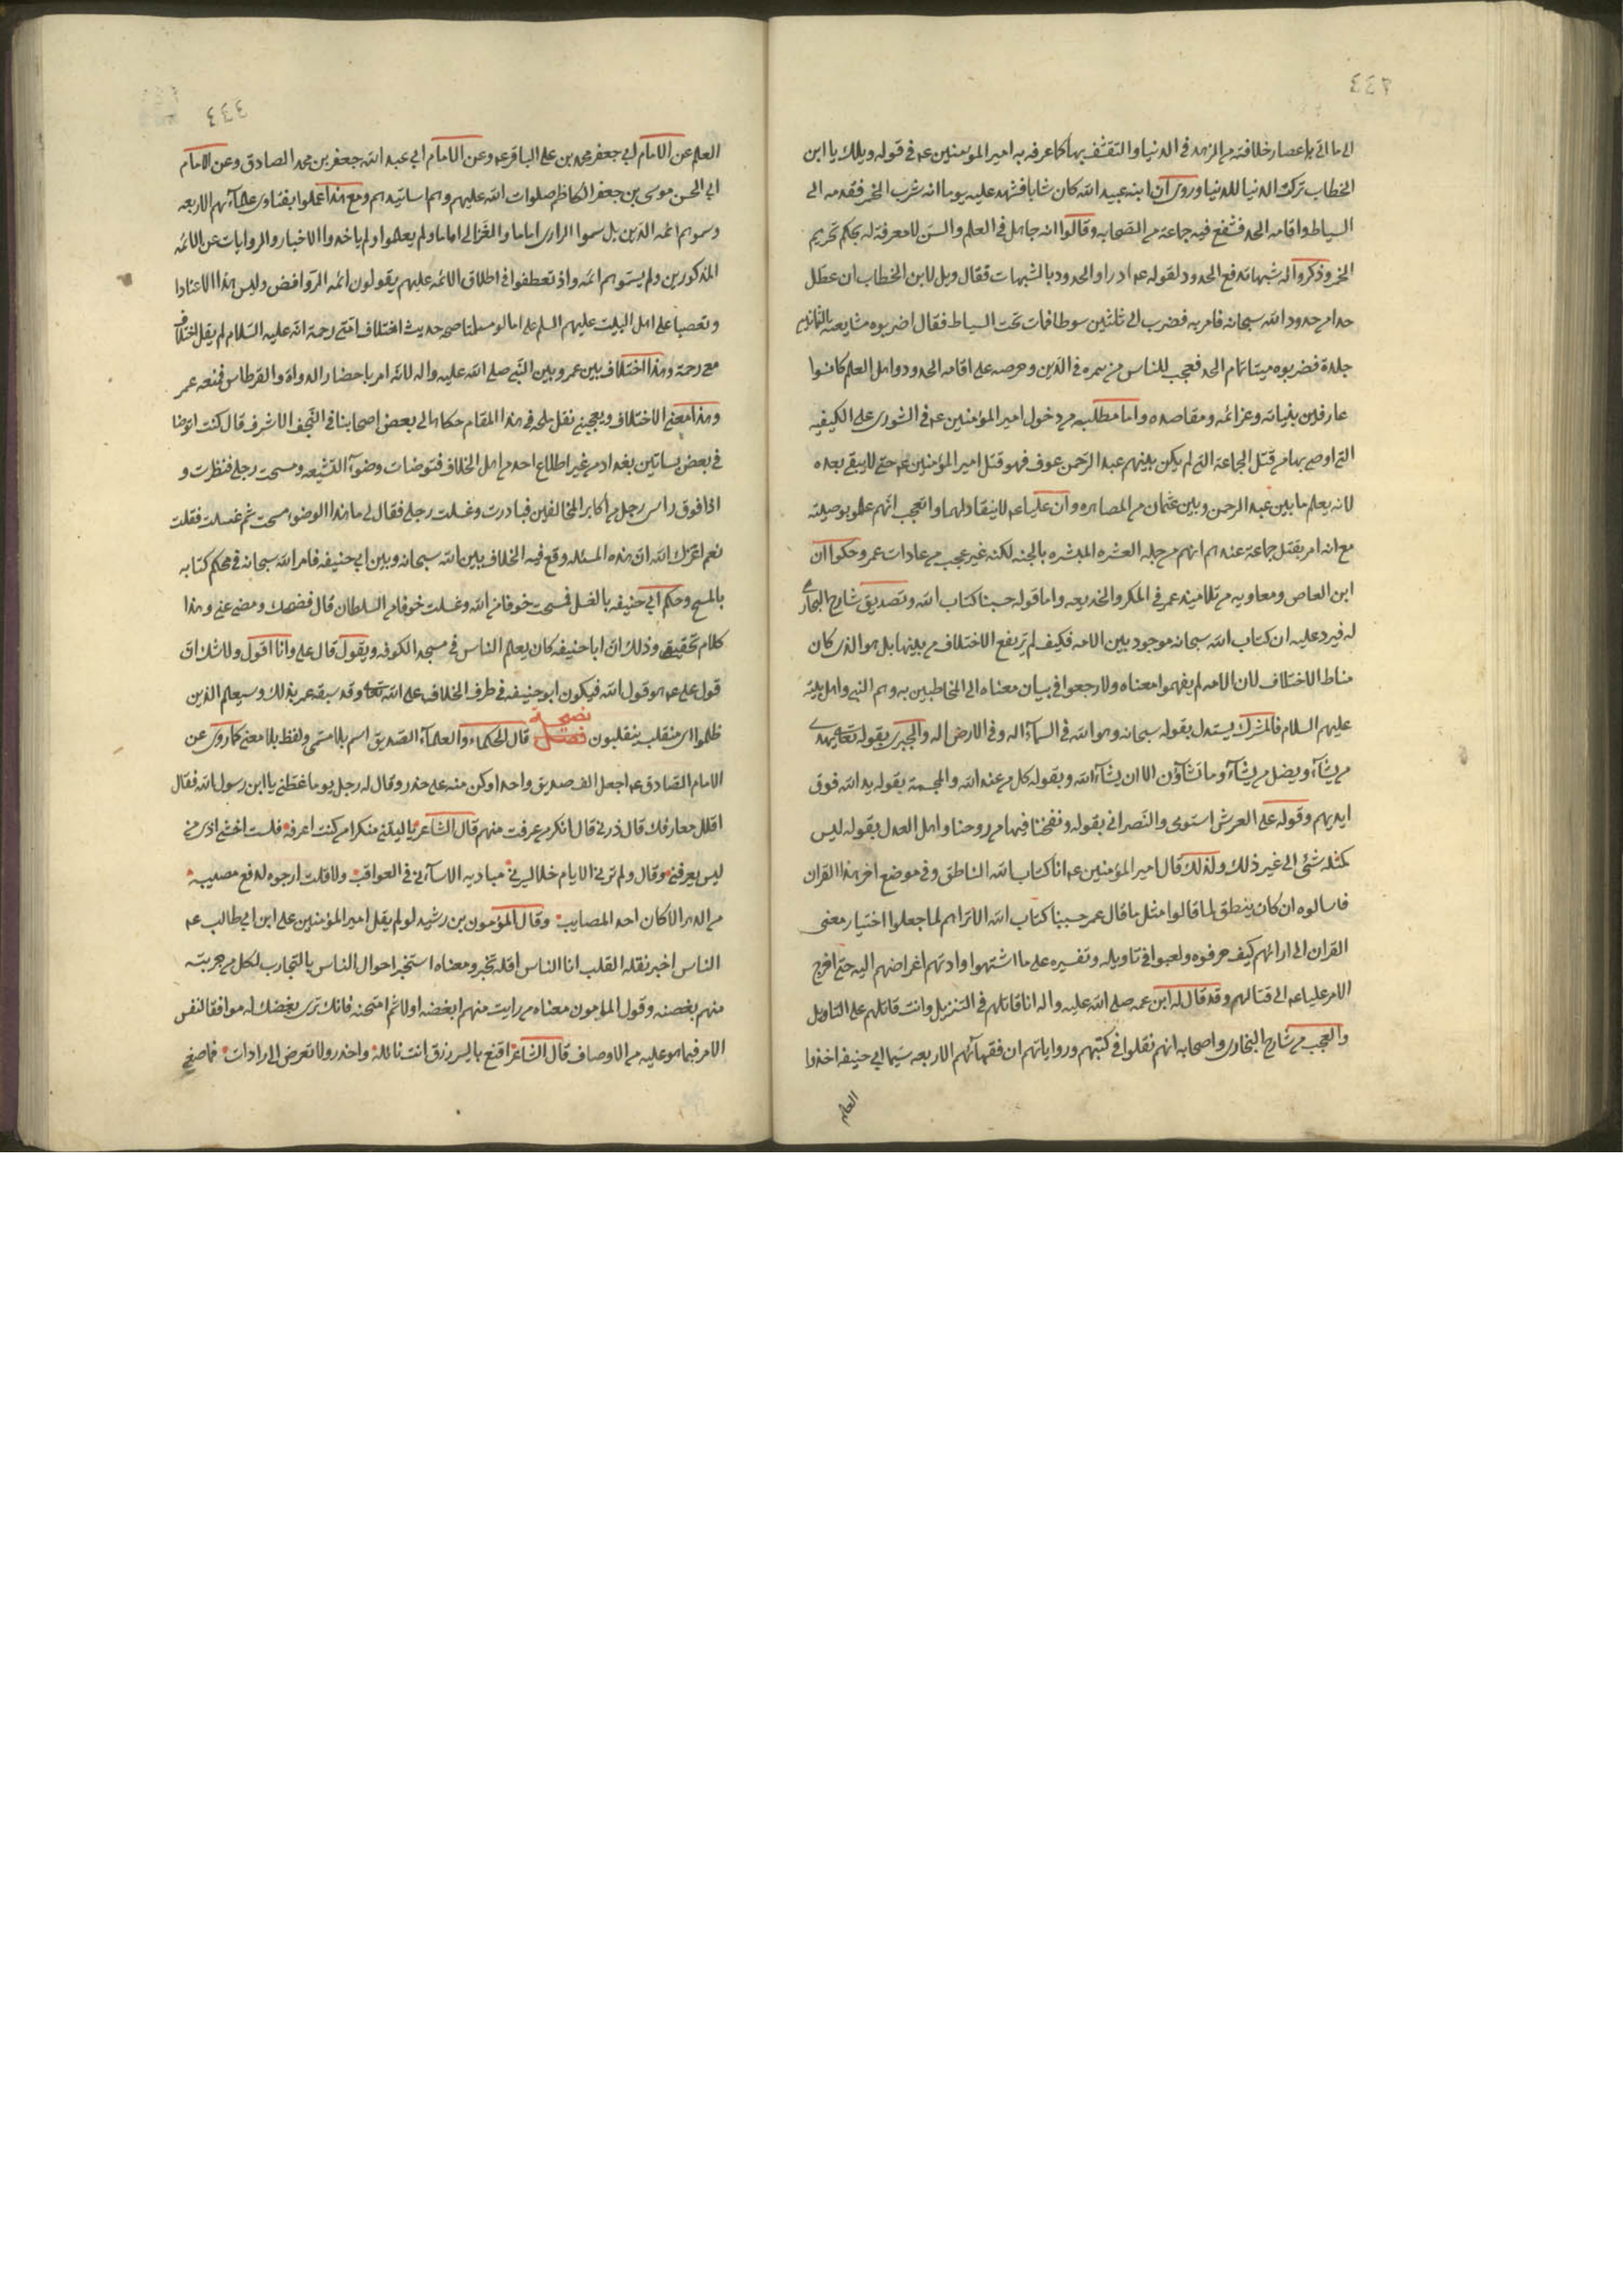 ٤٤٣
الى ما اتى باعصار خلافته من الزهد فى الدنيا والتقشف بها كما عرفه به امير المؤمنين عه فى قوله ويلك يا ابن
الخطاب تركت الدنيا للدنيا وروى ان ابنه عبيد الله كان شابا فشهد عليه يوما انه شرب الخمر فقدمه الى
السياط واقامه الحد فشفع فيه جماعة من الصحابه وقالوا انه جاهل فى العلم والسنن لا معرفة له بحكم تحريم
الخمر وذكروا له شبهات تدفع الحدود لقوله عه ادراوا الحدود بالشبهات فقال ويل لابن الخطاب ان عطل
حدا من حدود الله سبحانه فامر به فضرب الى ثلثين سوطا فمات تحت السياط فقال اضربوه
جلدة فضربوه ميتا تمام الحد فعجب للناس من سره فى الدين وحرصه على اقامه الحدود واهل العلم كانوا
عارفين بنياته وعزائمه ومقاصده واما مطلبه من دخول امير المؤمنين عه فى الشورى على الكيفيه
التى اوصى بها من قتل الجماعة التى لم يكن بينهم عبد الرحمن عوف فهو قتل امير المؤمنين عه حتى لا يبقى بعده
لانه يعلم ما بين عبد الرحمن وبين عثمان من المصاهره وان عليا عه لا ينقاد لهما والعجب انهم عملوا بوصيته
مع انه امر بقتل جماعة عندهم انهم من جمله العشره المبشره بالجنه لكنه غير عجب من عادات عمر وحكوا ان
ابن العاص ومعاويه من تلاميذ عمر فى المكر والخديعه واما قوله حسبنا كتاب الله وتصديق شارح البخارى
له فيرد عليه ان كتاب الله سبحانه موجود بين الامه فكيف لم يرتفع الاختلاف من بينها بل هو الذى كان
مناط الاختلاف لان الامه لم يفهموا معناه ولا رجعوا فى بيان معناه الى المخاطبين به وهم النبى واهل بيته
عليهم السلام فالمشرك يستدل بقوله سبحانه وهو الله فى السمآء اله وفى الارض اله والمجبرى بقوله تعالى يهدى
من يشآء ويضل من يشآء وما تشآؤن الا ان يشآء الله وبقوله كل من عند الله والمجسمة بقوله يد الله فوق
ايديهم وقوله على العرش استوى والنصرانى بقوله ونفخنا فيها من روحنا واهل العدل بقوله ليس
كمثله شئى الى غير ذلك ولذلك قال امير المؤمنين عه انا كتاب الله الناطق وفى موضع اخر هذا القران
فاسالوه ان كان ينطق لما قالوا مثل ما قال عمر حسبنا كتاب الله الا تراهم لما جعلوا اختيار معنى
القران الى ارائهم كيف حرفوه ولعبوا فى تاويله وتفسيره على ما اشتهوا وادتهم اغراضهم اليه حتى
الامر عليا عه الى قتالهم وقد قال له ابن عمه صلى الله عليه واله انا قاتلهم فى التنزيل وانت قاتلهم على التاويل
والعجب من شارح البخارى واصحابه انهم نقلوا فى كتبهم ورواياتهم ان فقهآئهم الاربعه سيما ابى حنيفه اخذوا
العلم
٤٤٤
العلم عن الامام ابى جعفر محمد بن على الباقر عه وعن الامام ابى عبد الله جعفر بن محمد الصادق وعن الامام
ابى الحسن موسى بن جعفر الكاظم صلوات الله عليهم وهم اساتيدهم ومع هذا عملوا بفتاوى علمآئهم الاربعه
وسموهم ائمه الدين بل سموا الرازى اماما والغزالى اماما ولم يعملوا ولم ياخذوا الاخبار والروايات عن الائمه
المذكورين ولم يسموهم ائمه واذ تعطفوا فى اطلاق الائمه عليهم يقولون ائمه الروافض وليس هذا الا عنادا
وتعصبا على اهل البيت عليهم السلم على انا لو سلمنا صحه حديث اختلاف امتى رحمة الله عليه السلام لم يقل اختلاف
معى رحمة وهذا اختلاف بين عمر وبين النبى صلى الله عليه واله لانه امر باحضار الدواة والقرطاس فمنعه عمر
وهذا معنى الاختلاف ويعجبنى نقل ملحه فى هذا المقام حكاها لى بعض اصحابنا فى النجف الاشرف قال كنت اتوضا
فى بعض بساتين بغداد من غير اطلاع احد من اهل الخلاف فتوضات وضوء الشيعه ومسحت رجلى فنظرت و
اذا فوق راسى رجل من اكابر المخالفين فبادرت وغسلت رجلى فقال لى ما هذا الوضوء مسحت ثم غسلت فقلت
نعم اعزك الله ان هذه المسئله وقع فيه الخلاف بين الله سبحانه وبين ابى حنيفه فامر الله سبحانه فى محكم كتابه
بالمسح وحكم ابى حنيفه بالغسل فمسحت خوفا من الله وغسلت خوفا من السلطان قال فضحك ومضى عنى وهذا
كلام تحقيقى وذلك ان ابا حنيفه كان يعلم الناس فى مسجد الكوفه ويقول قال على وانا اقول ولا شك ان
قول على عه هو قول الله فيكون ابو حنيفه فى طرف الخلاف على الله تعالى وقد سبقه عمر بذلك وسيعلم الذين
ظلموا اى منقلب ينقلبون فصل نصيحة قال الحكماء والعلمآء الصديق اسم بلا مسمى ولفظ بلا معنى كما روى عن
الامام الصادق عه اجعل الف صديق واحدا وكن منه على حذر وقال له رجل يوما عظنى يا ابن رسول الله فقال
اقلل معارفك قال زدنى قال انكر من عرفت منهم قال الشاعر يا ليتنى منكرا من كنت اعرفه فلست اخشى اذى من
ليس يعرفنى وقال ولم ترنى الايام خلا يسرنى مباديه الا سآءنى فى العواقب ولا قلت ارجوه لدفع مصيبة
من الدهر الا كان احد المصايب وقال المؤمون بن رشيد لو لم يقل امير المؤمنين على ابن ابى طالب عه
الناس اخبر تقله لقلت انا الناس اقله تخبر ومعناه استخبر احوال الناس بالتجارب لكل من جربته
منهم بغضته وقول المؤمون معناه من رايت منهم ابغضه اولا ثم امتحنه فانك ترى بغضك له موافقا لنفس
الامر فيما هو عليه من الاوصاف قال الشاعر اقنع بايسر رزق انت نائله واحذر ولا تعرض الى